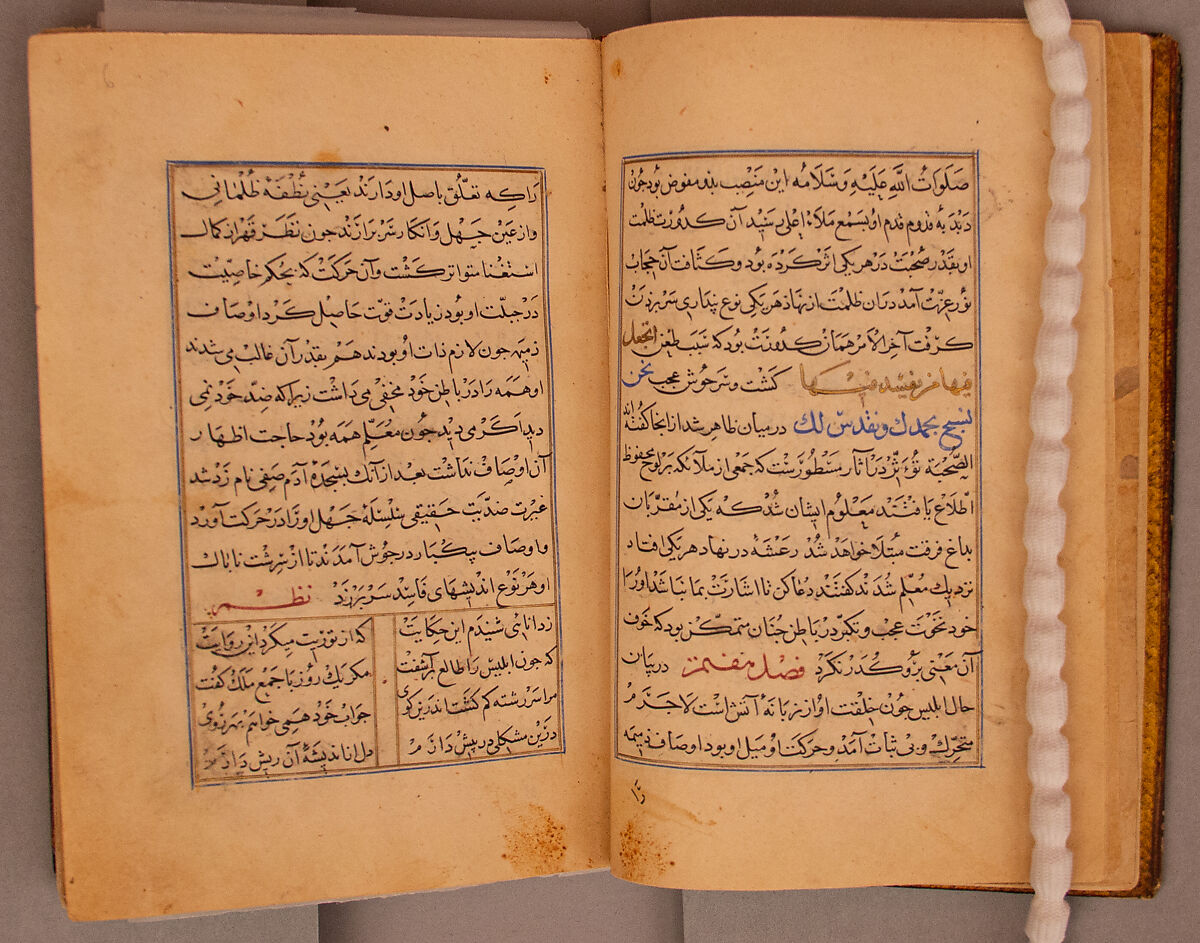 صلوات الله علیه وسلامه این منصب بدو مفوض بود چون
دید به قدوم قدم او بسمع ملاء اعلی رسید آن کدورت ظلمت
او بقدر صحبت در هر یکی اثر کرده بود و کثافت آن حجاب
نور عزت آمد در آن ظلمت از نهاد هر یکی نوع پنداری سر برزدن
گرفت آخر الامر همان کدورت بود که سبب طعن اتجعل
فیها من یفسد فیها گشت و سرجوش عجب نحن
نسبح بحمدك ونقدس لك در میان ظاهر شد از انجا گفته اند
الصحبة تؤثر در آثار مسطورست که جمعی از ملائکه بر لوح محفوظ
اطلاع یافتند معلوم ایشان شد که یکی از مقربان
بداغ فرقت مبتلا خواهد شد رعشه در نهاد هر یکی افتاد
نزدیك معلم شدند گفتند دعا کن تا اشارت بما نباشد او را
خود نخوت عجب و تکبر در باطن چنان متمکن بود که خوف
آن معنی برو گذر نکرد فصل هفتم در بیان
حال ابلیس چون خلقت او از زبانهٔ آتش است لاجرم
متحرك و بی ثبات آمد و حرکت او میل او بود اوصاف ذمیمه
را
را که تعلق باصل او دارند یعنی نطفهٔ ظلمانی
و از عین جهل و انکار سر برازند چون نظر قهر از کمال
استغنا متواتر گشت و آن حرکت که بحکم خاصیت
در جبلت او بود زیادت قوت حاصل کرد اوصاف
ذمیمه چون لازم ذات او بودند هم بقدر آن غالب می شدند
او همه را در باطن خود مخفی می داشت زیرا که ضد خود نمی
دید اگر می دید چون معلم همه بود حاجت اظهار
آن اوصاف نداشت بعد از آنك بسجدهٔ آدم صفی نام زد شد
غیرت ضدیت حقیقی سلسلهٔ جهل او را در حرکت آورد
و اوصاف بیکبار در جوش آمدند تا از سرشت ناپاك
او هر نوع اندیشهای فاسد سر برزد نظم
ز دانایی شنیدم این حکایت که از توریت میکرد این روایت
که چون ابلیس را طالع برآشفت مگر یك روز با جمع ملك گفت
مرا سررشته گم گشت اندرین کوی جواب خود همی خواهم بهر روی
درین مشکلی در پیش دارم دل از اندیشهٔ آن ریش دارم